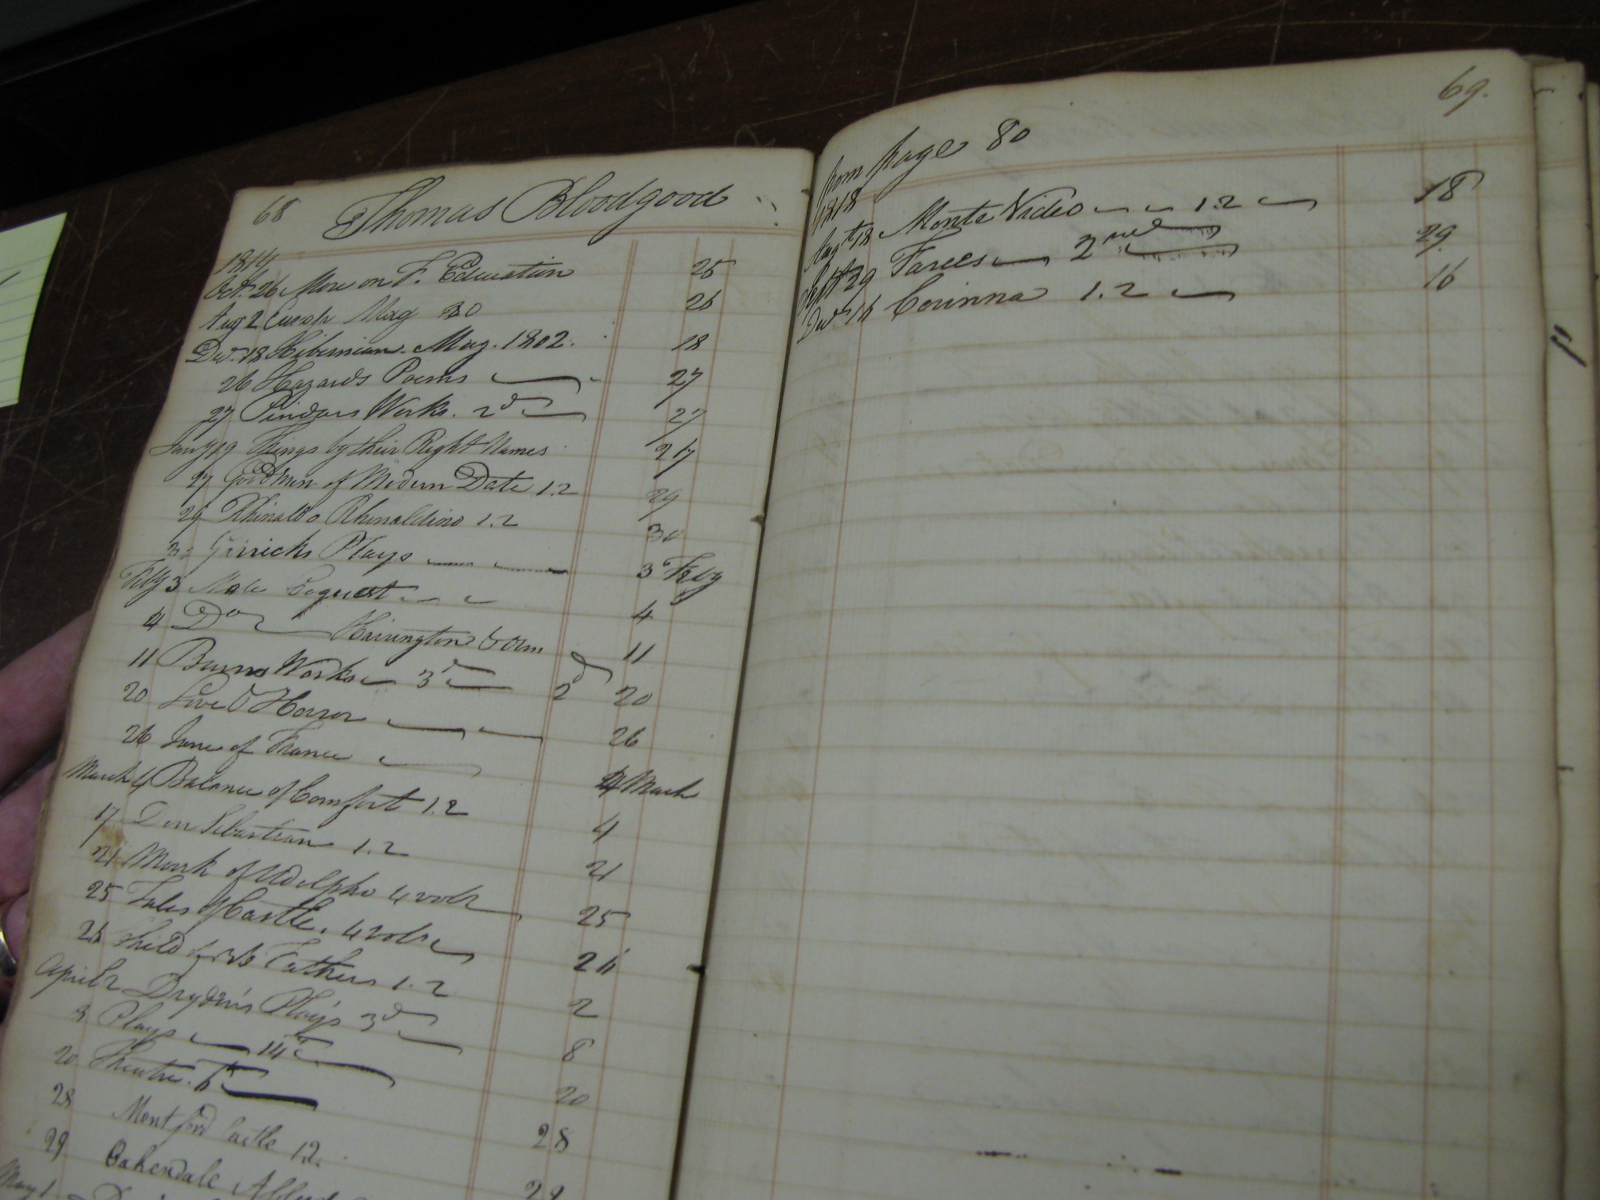 68 Thomas Bloodgood
1814
Oct. 26 More on F. Education 25
Aug 2 Mag 30 26
Dec. 18 Hibernian Mag. 1802. 18
26 Hazards Poems 27
27 Pindars Works. 2d 27
Jany 19 Things by their Right Names 27
27 of Modern Date 1.2 29
29 Rhinaldo Rhinaldino 1.2 30
Garricks Plays 3d Feby
Feby 3 Coquett 4
4 Do Harrington & Orm 11
11 Burns Works 3d 2d 20
20 Love & Horror 26
26 Jane of France 4 March
March 4 Balance of Comfort 1.2 4
17 Don Sebastian 1.2 21
21 Mack of Udolpho 4 vols 25
25 Tales of Castle. 4 vols 26
26 Child of 36 Fathers 1.2 2
April 2 Dryden's Plays 3d 8
8 Plays 14th 20
20 Theatre. 6th
28 Montford Castle 12. 28
29 Oakendale Abbey 29
May 1
69.
from page 80
1818
Augt 18 Monte Video 1.2 18
Sept 29 Farces 2nd 29
Decr 16 Corinna 1.2 16